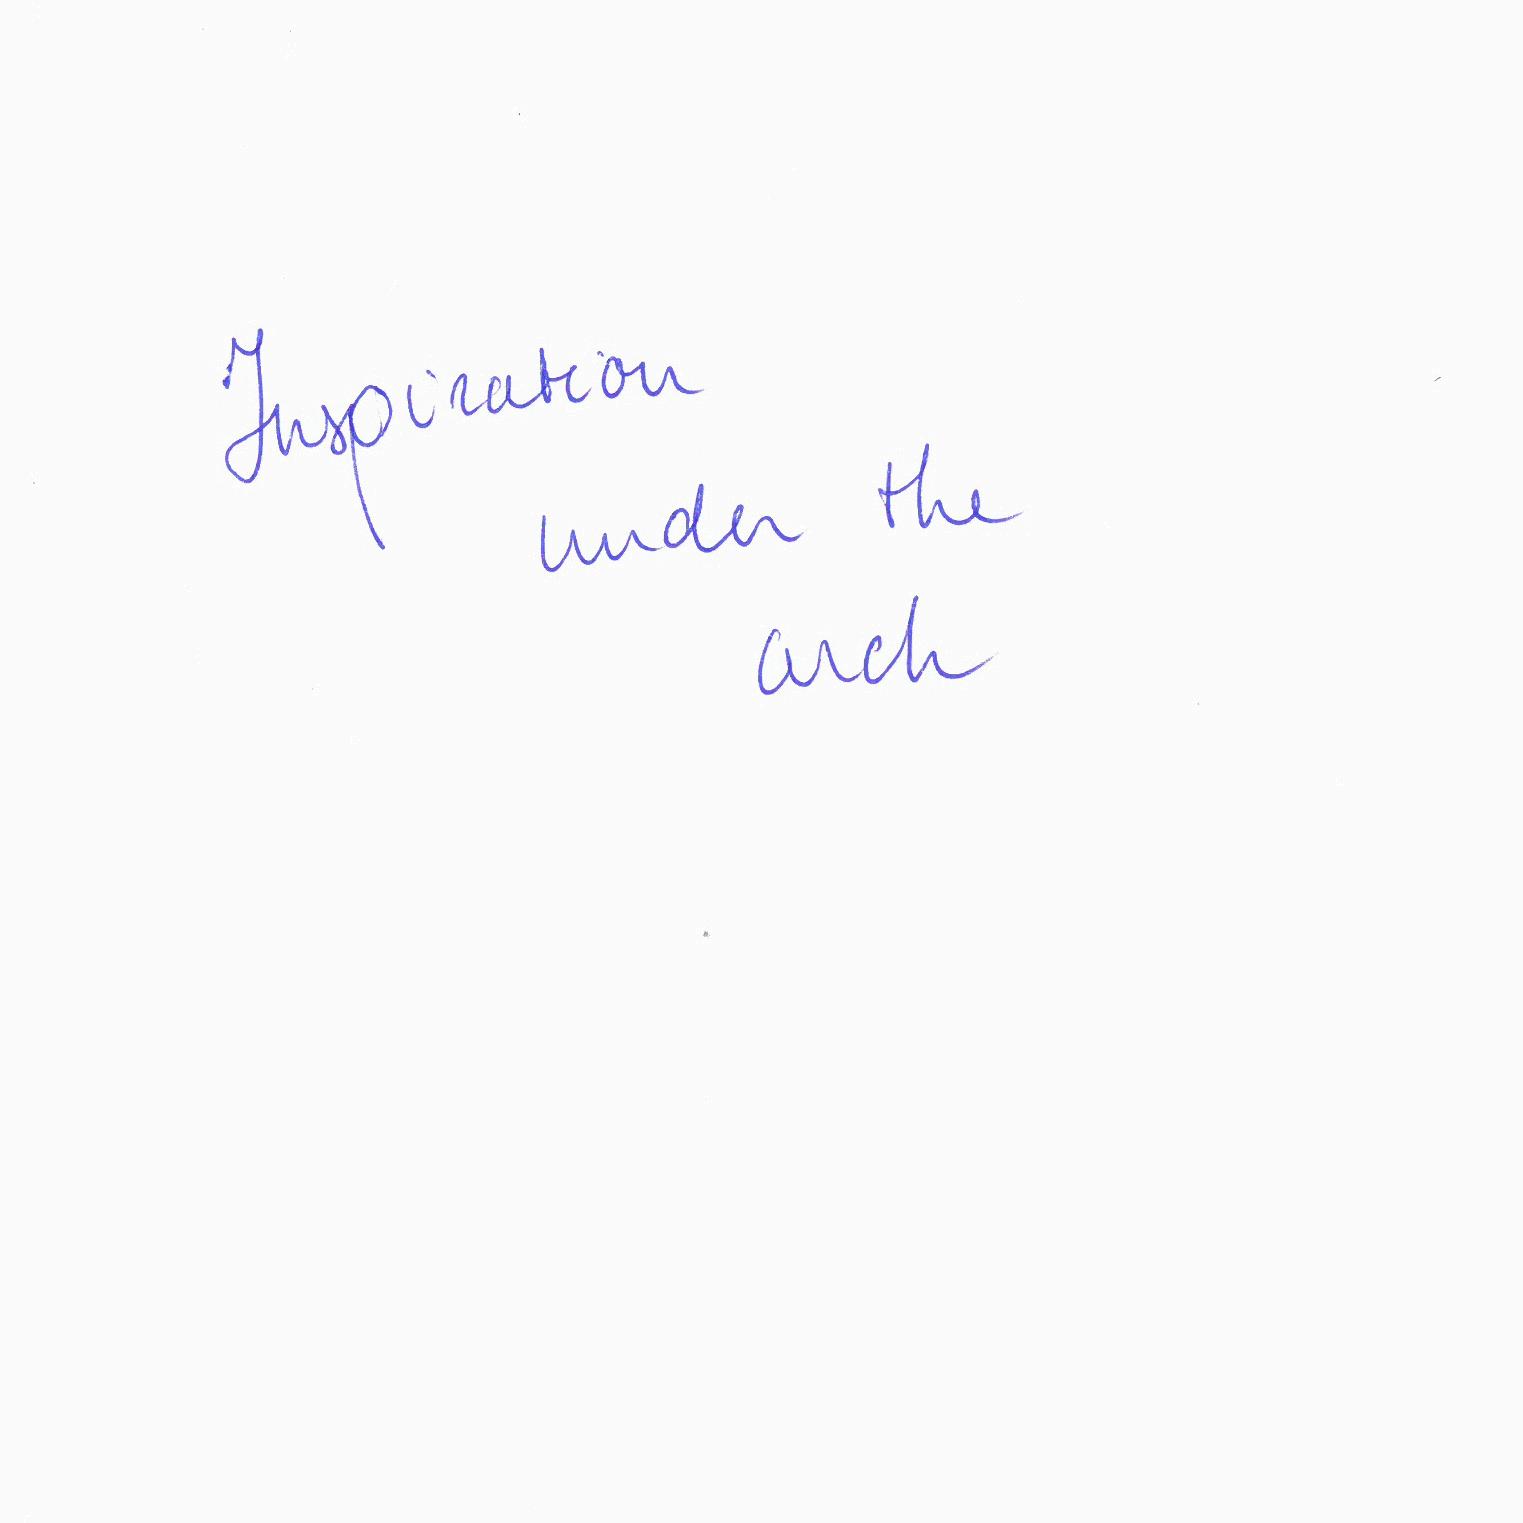 Inspiration
under the
arch